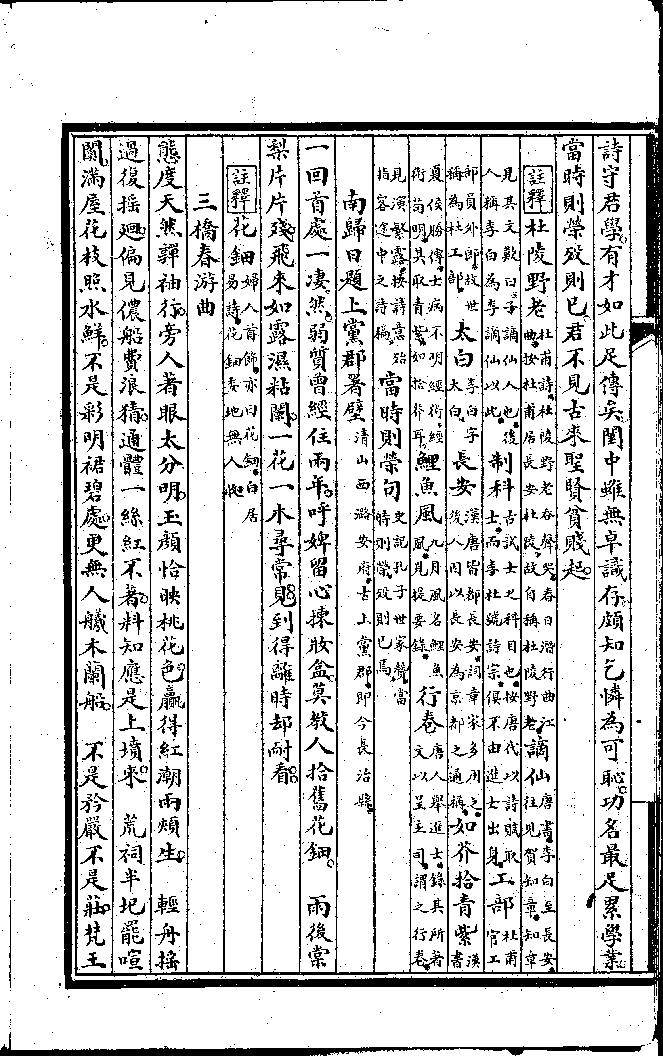 詩守君學有才如此足傳矣閨中雖無卓識存頗知乞憐為可恥功名最足累學業
當時則榮歿則已君不見古來聖賢貧賤起
註釋 杜陵野老 杜甫詩杜陵野老吞聲哭春日潛行曲江曲按杜甫居長安杜陵故自稱杜陵野老 謫仙 唐書李白至長安往見賀知章知章
見其文歎曰子謫仙人也後人稱李白為李謫仙以此 制科 古試士之科目也按唐代以詩賦取士而李杜號詩宗俱不由進士出身 工部 杜甫官工
部員外郎故世稱為杜工部 太白 李白字太白 長安 漢唐皆都長安詞章家多用之後人因以長安為京都之通稱 如芥拾青紫 漢書
夏侯勝傳士病不明經術經術苟明其取青紫如拾芥耳 鯉魚風 九月風名鯉魚風見提要錄 行卷 唐人舉進士錄其所著文以呈主司謂之行卷
見演繁露按詩意殆指客途中之詩稿 當時則榮句 史記孔子世家贊當時則榮歿則已焉
南歸日題上黨郡署壁 清山西潞安府古上黨郡即今長治縣
一回首處一凄然弱質曾經住兩年呼婢留心揀妝盒莫教人拾舊花鈿 雨後棠
梨片片殘飛來如露濕粘闌一花一木尋常見到得離時却耐看
註釋 花鈿 婦人首飾亦曰花鈿白居易詩花鈿委地無人收
三橋春游曲
態度天然嚲袖行旁人著眼太分明玉顏恰映桃花色贏得紅潮兩頰生 輕舟搖
過復搖迴偏見儂船費浪猜通體一絲紅不著料知應是上墳來 荒祠半圮罷喧
闐滿座花枝照水鮮不是彩明裙碧處更無人艤木蘭船 不是矜嚴不是莊梵王